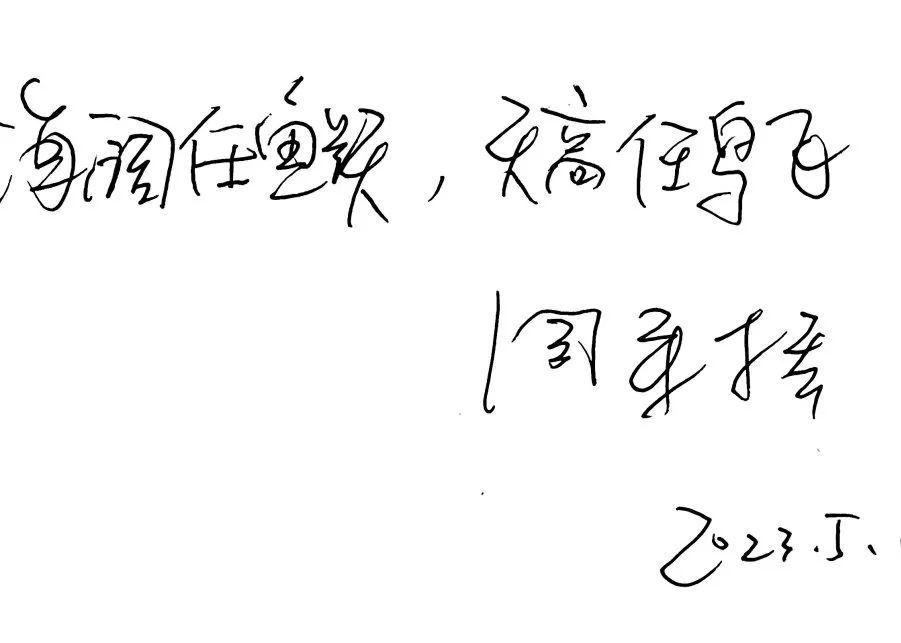 海阔任鱼跃,天高任鸟飞
周
2023.5.